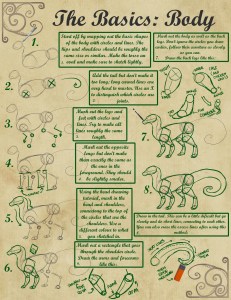 The Basics: Body
1.
Start off by mapping out the basic shapes
of the body with circles and lines. The
hips and shoulders should be roughly the
same size as
and make sure to sketch lightly.
2.
Add the tail but don't make it
too long; long curved lines are
very hard to master. Use an X
to distinguish which circles are
joints.
3.
Mark out the legs and
feet with circles and
lines. Try to make all
lines roughly the same
length.
4.
Mark out the opposite
legs but don't make
them exactly the same as
the ones in the
foreground. They should
be slightly smaller.
5.
Using the head drawing
tutorial, mark in the
head and shoulders,
connecting to the top of
the circles that are the
shoulders. Use a
different colour to what
you sketched in.
6.
Mark out a rectangle that goes
through the shoulder circle.
Draw the arms and forearms
like this:
7.
Mark out the body as well as the back
legs. Don't ignore the circles you drew
earlier, follow their outlines as closely
as you can.
Draw the back legs like this:
8.
Draw in the tail. This can be a little difficult but go
slowly and do short lines, connecting to each other.
You can also erase the excess lines after using this
method.